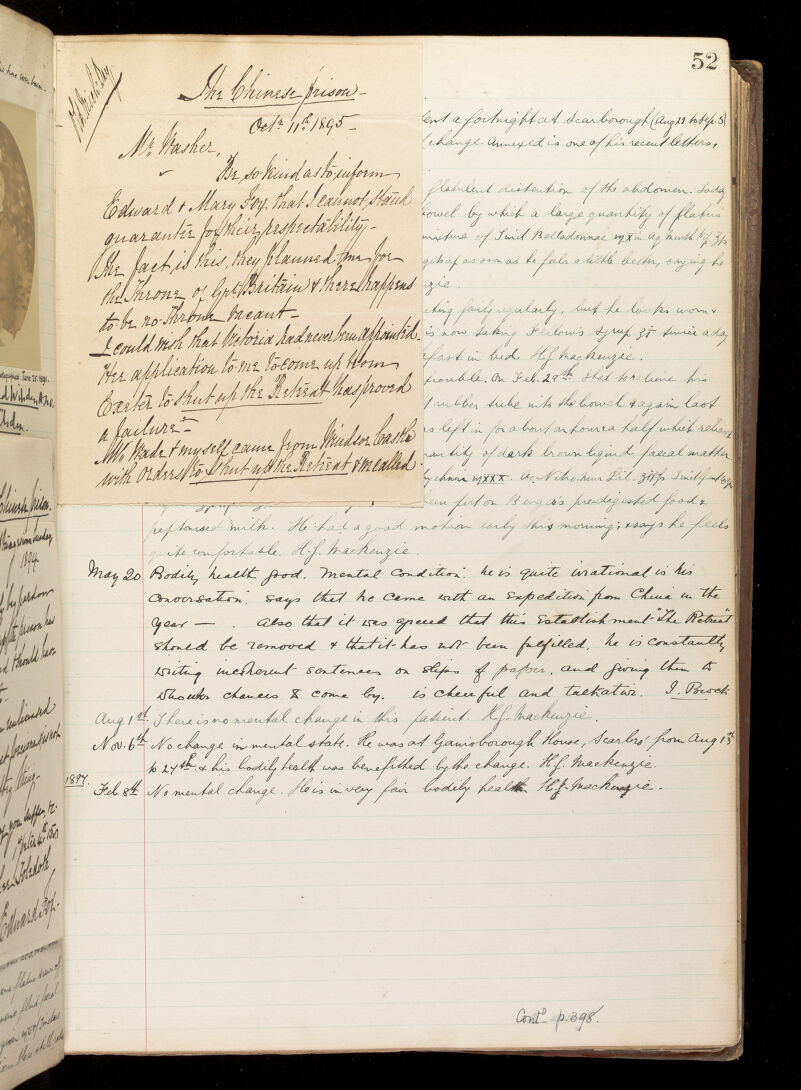 52
The Chinese prison -
Octr 11th 1895 -
Mr Washer,
Be so kind as to inform
Edward & Mary Foy, that I cannot stand
guarantee for their respectability -
The fact is this, they planned me for
the Throne of Grt Britain & there happens
to be no Throne vacant -
I could wish that Victoria had never been appointed -
Her application to me to come up from
Exeter to shut up the Retreat has proved
a failure -
Mr Wade & myself came from Windsor Castle
with orders to shut up the Retreat & we called
ent a fortnight at Scarborough (Aug 22 to Sep. 5)
change. Annexed is one of his recent letters.
flatulent distention of the abdomen. Today
bowel by which a large quantity of flatus
mixture of Tinct Belladonnae
gets up as soon as he feels a little better, saying he
nzie.
ting fairly regularly, but he looks worn &
is now taking Fellows Syrup twice a day
kfast in bed. H.J. Mackenzie.
trouble. On Feb. 29th I had to relieve his
rubber tube into the bowel & again last
as left in for about an hour & a half which relieved
quantity of dark brown liquid faecal matter
been put on Benger's predigested food &
peptonised milk. He had a good motion early this morning, & says he feels
quite comfortable. H.J. Mackenzie.
May 20 Bodily health good. Mental condition. he is quite irrational in his
conversation. says that he came with an expedition from China in the
year — . Also that it was agreed that this establishment "The Retreat"
should be removed & that it has not been fulfilled. he is constantly
writing incoherent sentences on slips of paper, and giving them to
whoever chances to come by. is cheerful and talkative. I. Brock
Aug 1st. There is no mental change in this patient. H.J. Mackenzie.
Nov. 6th No change in mental state. He was at Gainsborough House, Scarbro' from Aug 13th
to 27th & his bodily health was benefitted by the change. H.J. Mackenzie.
1897.
Feb 8th No mental change. He is in very fair bodily health. H.J. Mackenzie.
Contd p. 398.
Chinese prison.
1894
Edward Foy -